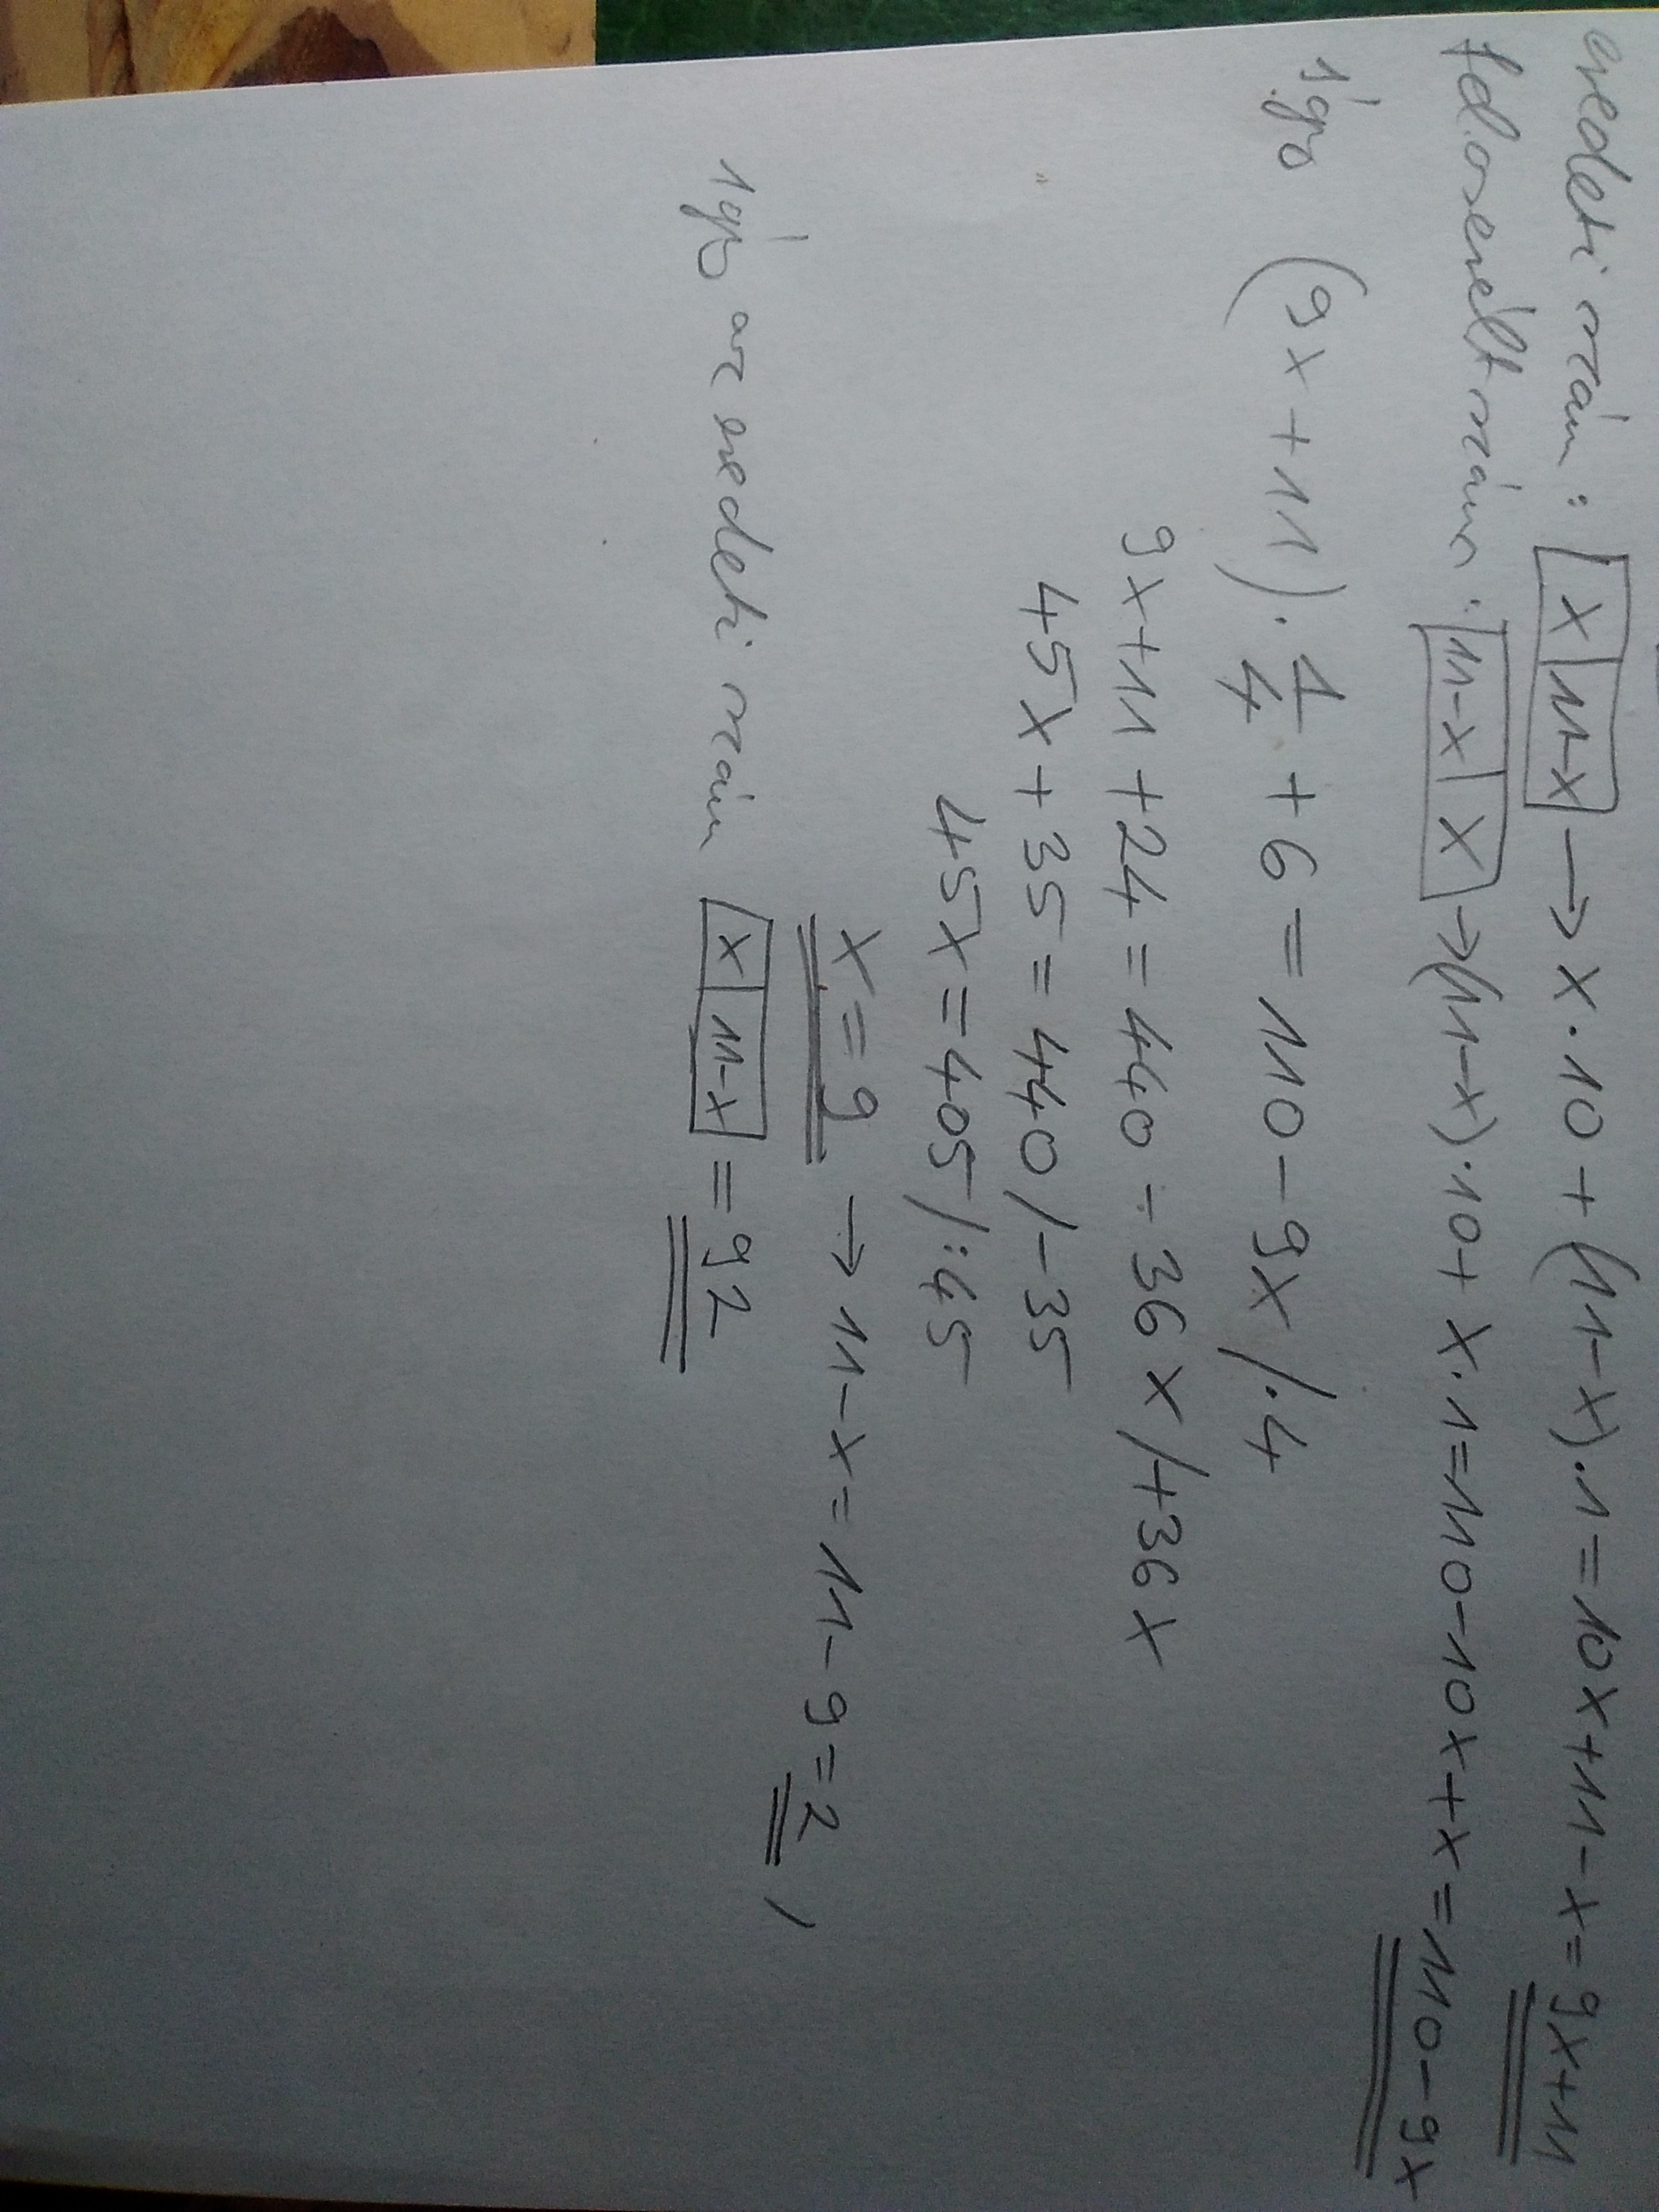 eredeti szám: x 11-x → x·10+(11-x)·1=10x+11-x=9x+11
felcserélt szám: 11-x x → (11-x)·10+x·1=110-10x+x=110-9x
Így (9x+11)·1/4+6=110-9x/·4
9x+11+24=440-36x/+36x
45x+35=440/-35
45x=405/:45
x=9 → 11-x=11-9=2,
Így az eredeti szám x 11-x =92